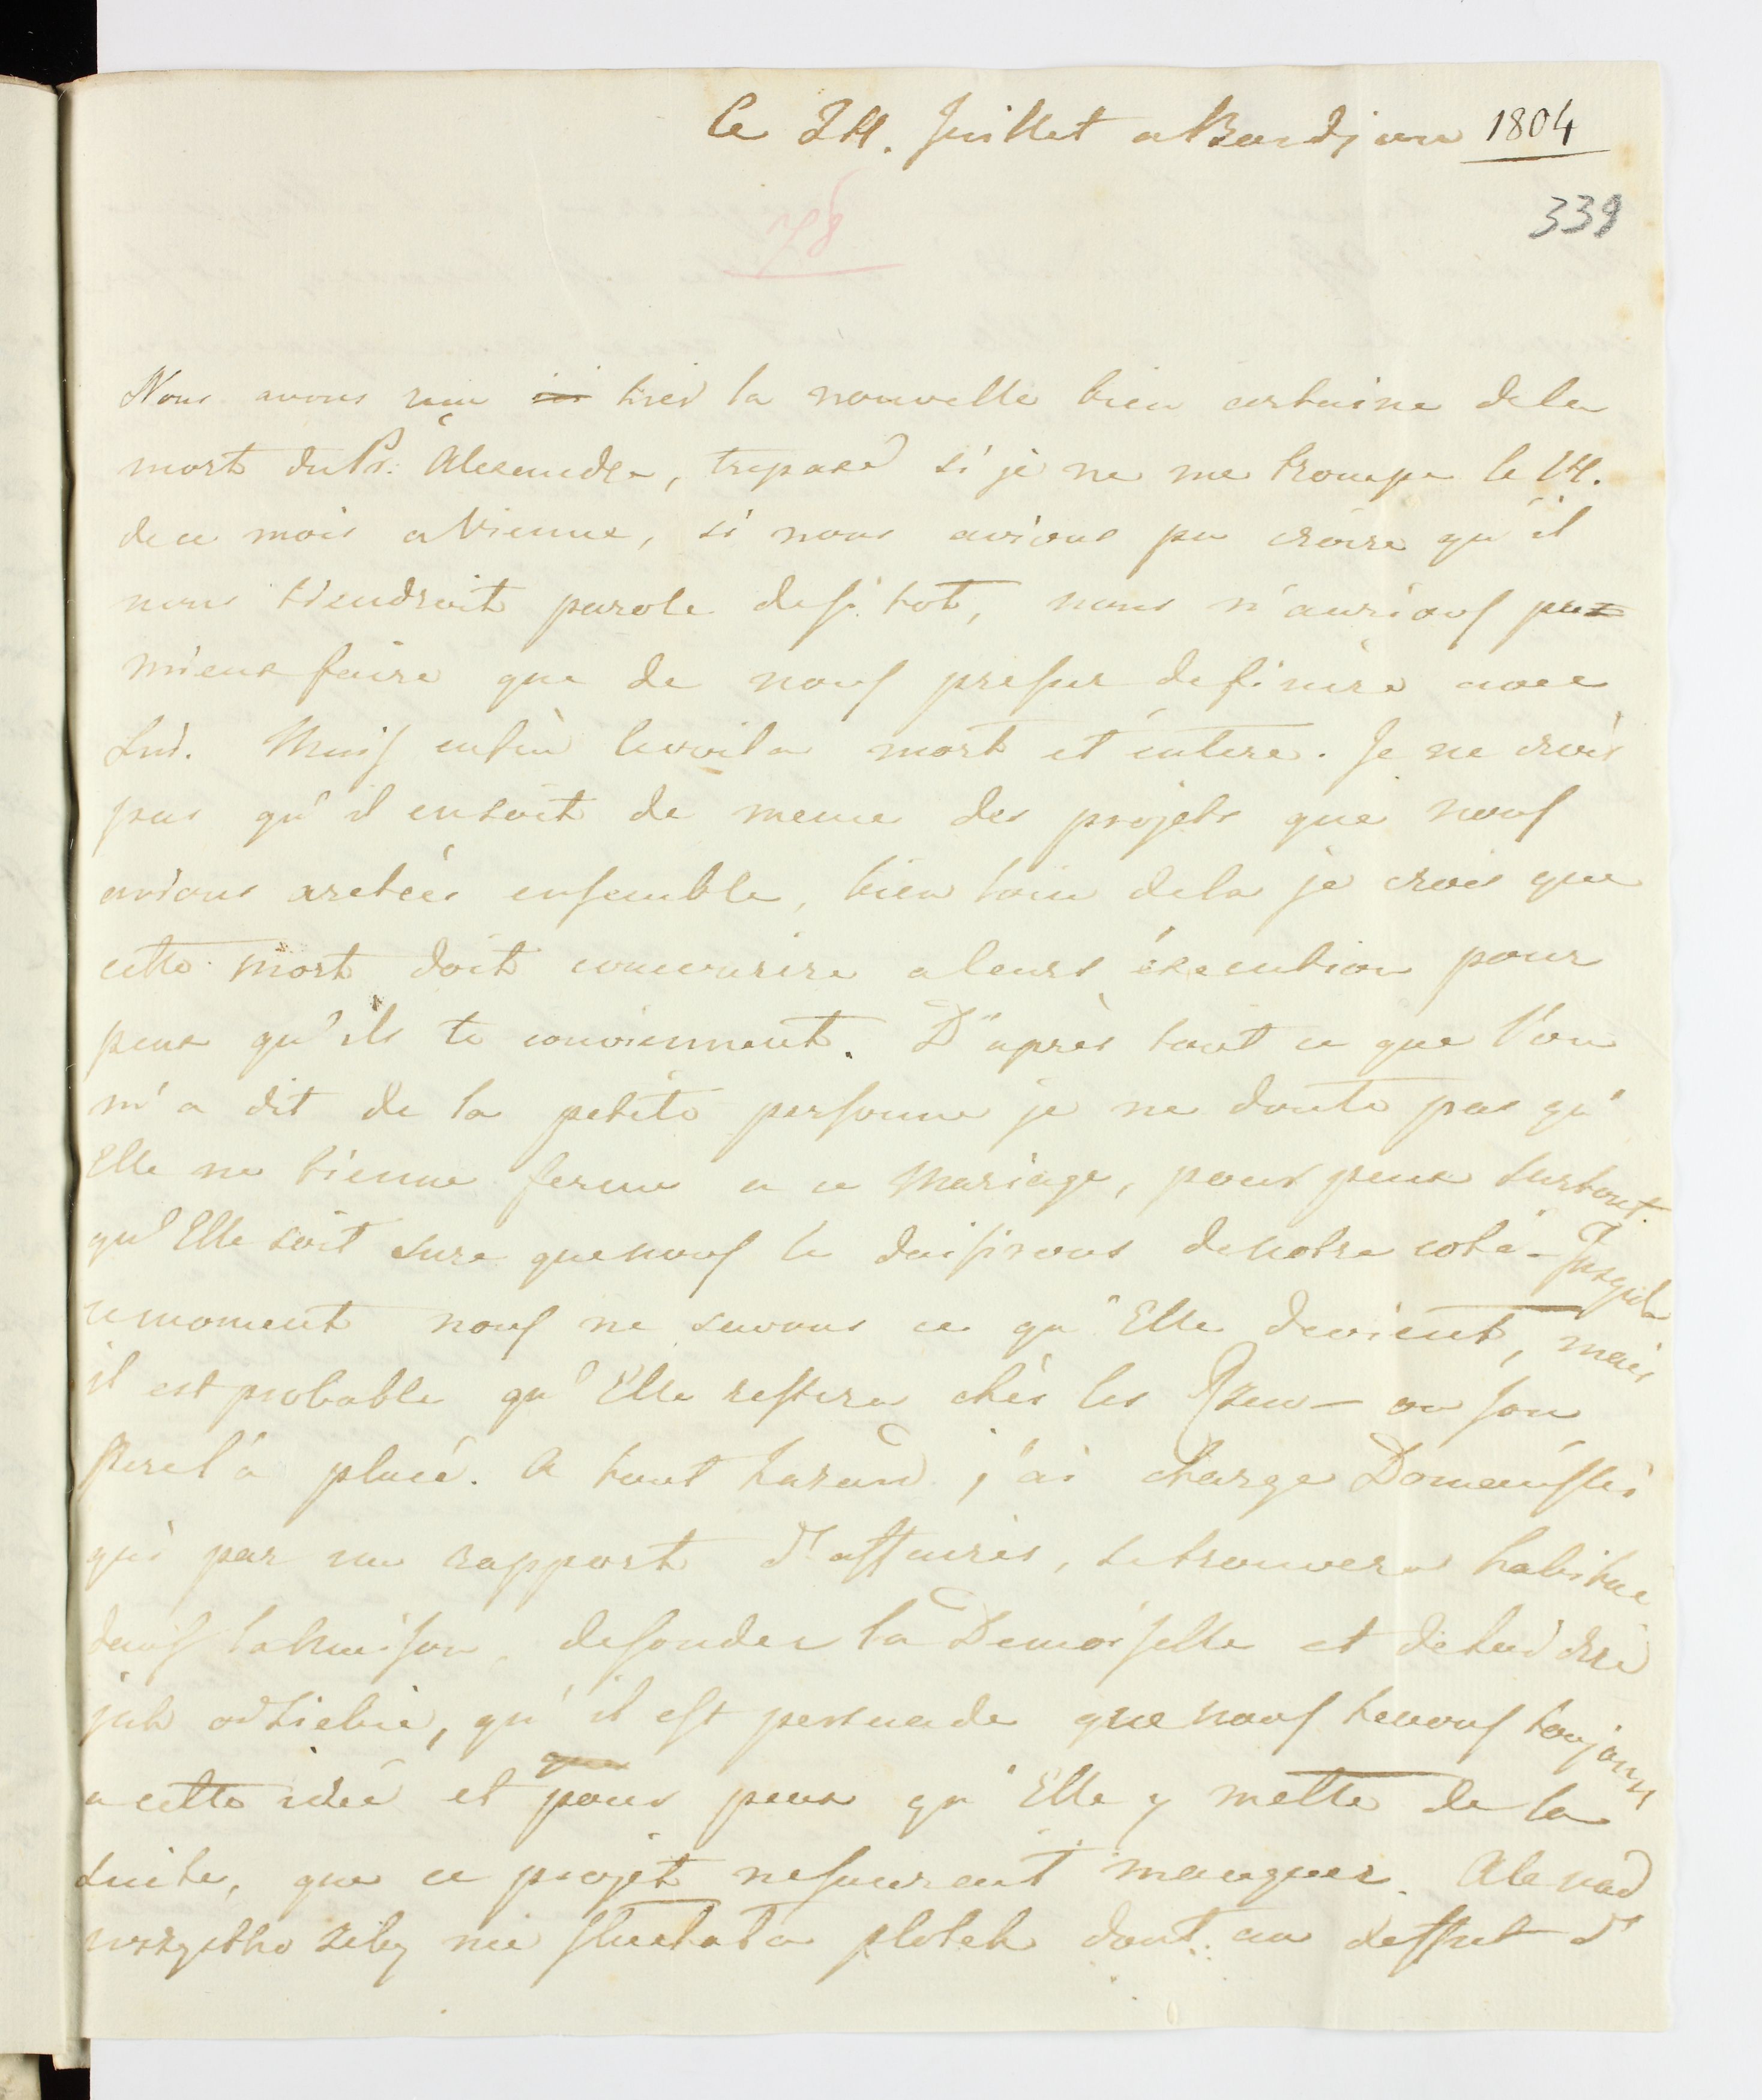 Ce 24. Juillet a Bardjow 1804
339
178
Nous avons reçu ici hier la nouvelle bien certaine dela
mort du Pr: Alexandre, trepasé si je ne me trompe le 14.
de ce mois a Vienne, si nous avions pu croire qu'il
nous tiendroit parole desi tot, nous n'aurions pu
mieux faire que de nous presser definire avec
Lui. Mais enfin levoila mort et enteré. Je ne crois
pas qu'il ensoit de meme des projets que nous
avions aretées ensemble, bien loin dela je crois que
cette mort doit concourire a leurs éxecution pour
peux qu'ils te conviennent. D'après tout ce que l'on
m'a dit de la petite personne je ne doute pas qu'
Elle ne tienne ferme a ce Mariage, pour peux surtout
qu'Elle soit sure que nous le daisirons de notre coté - Jusqu'a
ce moment nous ne savons ce qu'Elle devient, mais
il est probable qu'Elle restera chès les Rzew - ou son
Pere l'a placé. A tout hazard j'ai charge Domanski
qui par un rapport d'affaires, se trouvera habitué
dans la Maison, de sonder la Demoiselle et de lui dire
jak od siebie, qu'il est persuade que nous tenons toujours
a cette idée et pour peux qu'Elle y mette de la
suite, que ce projet ne sauroit manquer. Ale nad
wszystko żeby nie słuchała plotek dont au deffaut d'